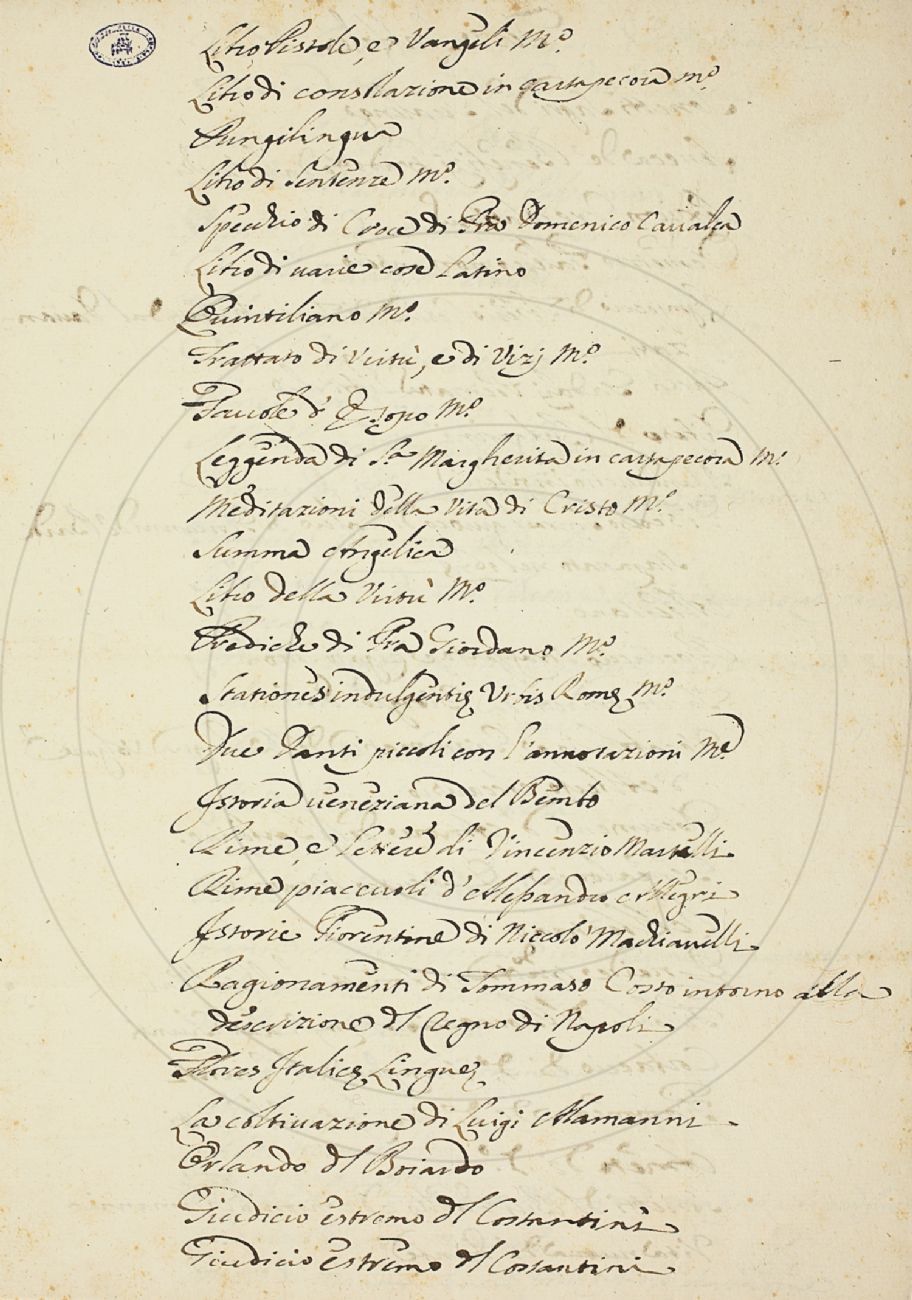 Libro Pistole, e Vangeli M.º
Libro di consolazione in cartapecora m.º
Pungilingua
Libro di Sentenze M.º
Specchio di Croce di Fra Domenico Caualca
Libro di uarie cose Latino
Quintiliano M.º
Trattato di Virtù, e di Vizj M.º
Fauole d'Esopo M.º
Leggenda di S.ª Margherita in cartapecora M.º
Meditazioni della Vita di Cristo M.º
Summa Angelica
Libro della Virtù M.º
Prediche di Fra Giordano M.º
Stationes indulgentię Urbis Romę M.º
Due Danti piccoli con l'annotazioni M.ⁱ
Istoria ueneziana del Bembo
Rime, e Lettere di Vincenzio Martelli
Rime piaceuoli d'Alessandro Allegri
Istorie Fiorentine di Niccolò Machiauelli
Ragionamenti di Tommaso Costo intorno alla
descrizione del Regno di Napoli
Flores Italicę Linguę
La coltiuazione di Luigi Alamanni
Orlando del Boiardo
Giudicio estremo del Costantini
Giudicio estremo del Costantini